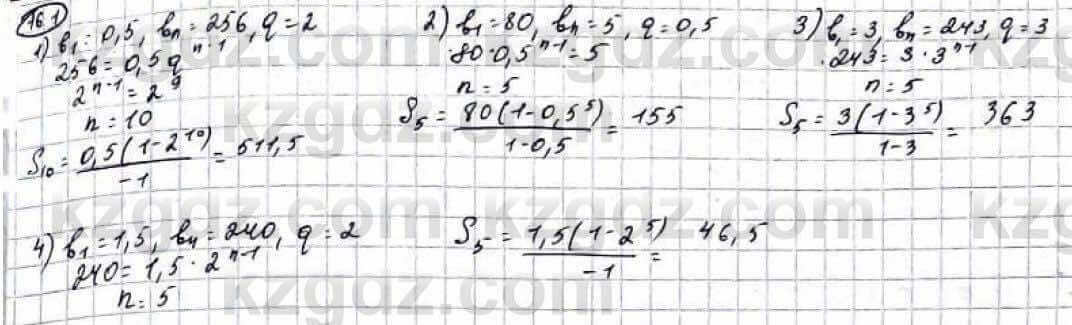 761
1) b₁ = 0,5, bₙ = 256, q = 2
256 = 0,5q^{n-1}
2^{n-1} = 2^9
n = 10
S₁₀ = 0,5(1-2^{10}) / -1 = 511,5
2) b₁ = 80, bₙ = 5, q = 0,5
80·0,5^{n-1} = 5
n = 5
S₅ = 80(1-0,5^5) / 1-0,5 = 155
3) b₁ = 3, bₙ = 243, q = 3
243 = 3·3^{n-1}
n = 5
S₅ = 3(1-3^5) / 1-3 = 363
4) b₁ = 1,5, b₄ = 240, q = 2
240 = 1,5·2^{n-1}
n = 5
S₅ = 1,5(1-2^5) / -1 = 46,5
kzgdz.com kzgdz.com kzgdz.com
kzgdz.com kzgdz.com kzgdz.com